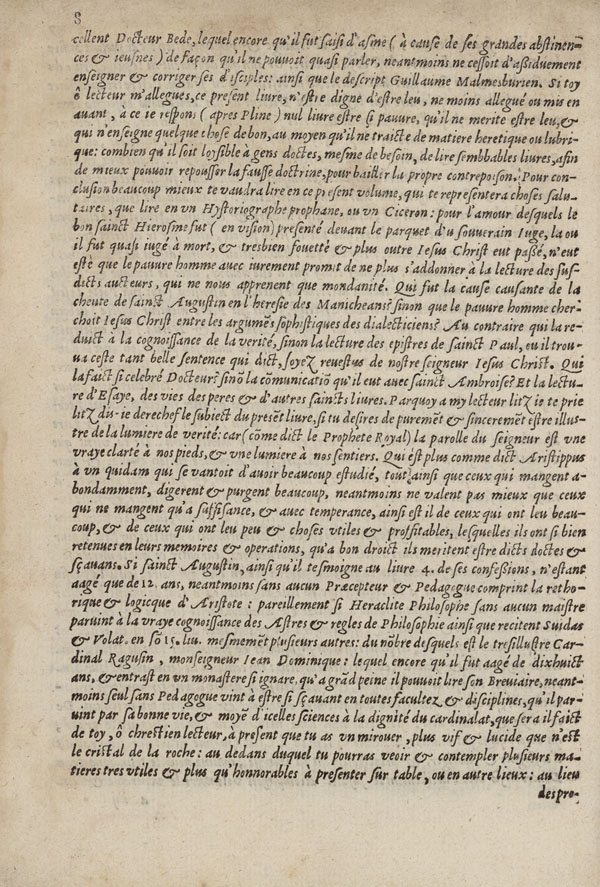 8
cellent Docteur Bede, lequel encore qu'il fut saisi d'asme ( à cause de ses grandes abstinen-
ces & ieusnes ) de façon qu'il ne pouuoit quasi parler, neantmoins ne cessoit d'assiduement
enseigner & corriger ses disciples: ainsi que le descript Guillaume Malmesburien. Si toy
ô lecteur m'allegues, ce present liure, n'estre digne d'estre leu, ne moins allegué ou mis en
auant, à ce ie respons ( apres Pline ) nul liure estre si pauure, qu'il ne merite estre leu, &
qui n'enseigne quelque chose de bon, au moyen qu'il ne traicte de matiere heretique ou lubri-
que: combien qu'il soit loysible à gens doctes, mesme de besoin, de lire semblables liures, afin
de mieux pouuoir repousser la fausse doctrine, pour bailler la propre contrepoison. Pour con-
clusion beaucoup mieux te vaudra lire en ce present volume, qui te representera choses salu-
taires, que lire en vn Hystoriographe prophane, ou vn Ciceron: pour l'amour desquels le
bon sainct Hierosme fut ( en vision) presenté deuant le parquet du souuerain Iuge, la ou
il fut quasi iugé à mort, & tresbien fouetté & plus outre Iesus Christ eut passé, n'eut
esté que le pauure homme auec iurement promit de ne plus s'addonner à la lecture des sus-
dicts aucteurs, qui ne nous apprenent que mondanité. Qui fut la cause causante de la
cheute de sainct Augustin en l'heresie des Manicheans? sinon que le pauure homme cher-
choit Iesus Christ entre les argumẽs sophistiques des dialecticiens? Au contraire qui la re-
duict à la cognoissance de la verité, sinon la lecture des epistres de sainct Paul, eu il trou-
ua ceste tant belle sentence qui dict, soyez reuestus de nostre seigneur Iesus Christ. Qui
la faict si celebré Docteur? sinõ la cõmunicatiõ qu'il eut auec sainct Ambroise? Et la lectu-
re d'Esaye, des vies des peres & d'autres saincts liures. Parquoy a my lecteur litz ie te prie
litz dis-ie derechef le subiect du presẽt liure, si tu desires de puremẽt & sinceremẽt estre illus-
tre de la lumiere de verité: car ( cõme dict le Prophete Royal) la parolle du seigneur est vne
vraye clarté à nos pieds, & vne lumiere à nos sentiers. Qui est plus comme dict Aristippus
à vn quidam qui se vantoit d'auoir beaucoup estudié, tout ainsi que ceux qui mangent a-
bondamment, digerent & purgent beaucoup, neantmoins ne valent pas mieux que ceux
qui ne mangent qu'a suffisance, & auec temperance, ainsi est il de ceux qui ont leu beau-
coup, & de ceux qui ont leu peu & choses vtiles & proffitables, lesquelles ils ont si bien
retenues en leurs memoires & operations, qu'a bon droict ils meritent estre dicts doctes &
sçauans. Si sainct Augustin, ainsi qu'il tesmoigne au liure 4. de ses confessions, n'estant
aagé que de 12. ans, neantmoins sans aucun Præcepteur & Pedagogue comprint la retho-
rique & logicque d'Aristote : pareillement si Heraclite Philosophe sans aucun maistre
paruint à la vraye cognoissance des Astres & regles de Philosophie ainsi que recitent Suidas
& Volat. en sõ 15. liu. mesmemẽt plusieurs autres: du nõbre desquels est le tresillustre Car-
dinal Ragusin, monseigneur Iean Dominique: lequel encore qu'il fut aagé de dixhuict
ans, & entrast en vn monastere si ignare, qu'a grãd peine il pouuoit lire son Breuiaire, neant-
moins seul sans Pedagogue vint à estre si sçauant en toutes facultez & disciplines, qu'il par-
uint par sa bonne vie, & moyẽ d'icelles sciences à la dignité du cardinalat, que sera il faict
de toy, ô chrestien lecteur, à present que tu as vn mirouer, plus vif & lucide que n'est
le cristal de la roche: au dedans duquel tu pourras veoir & contempler plusieurs ma-
tieres tres vtiles & plus qu'honnorables à presenter sur table, ou en autre lieux: au lieu
despro-